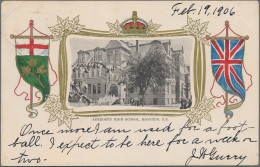 Feb. 19, 1906
ABERDEEN HIGH SCHOOL, MONCTON, N.B.
Once more I am used for a foot-
ball. I expect to be here for a week or
two. J H Gurry